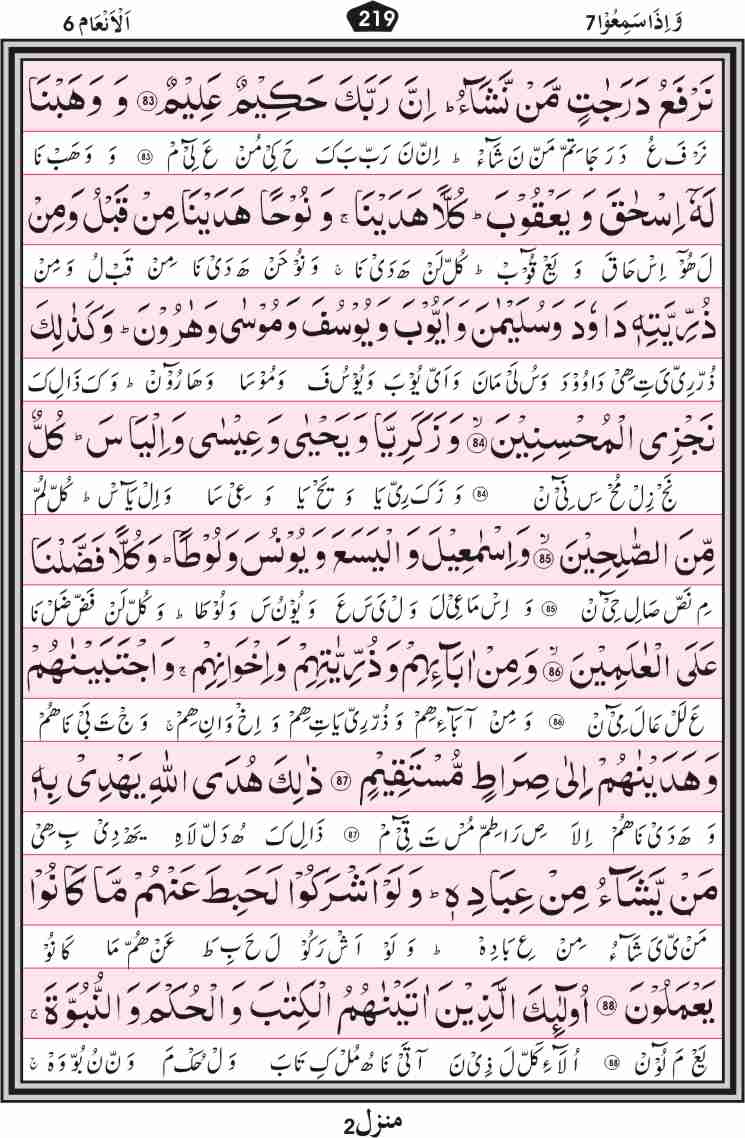 وَ اِذَا سَمِعُوْا 7 219 اَلْاَنْعَام 6
نَرْفَعُ دَرَجٰتٍ مَّنْ نَّشَآءُ ؕ اِنَّ رَبَّكَ حَكِیْمٌ عَلِیْمٌ ۝83 وَ وَهَبْنَا
نَرْ فَ عُ دَ رَ جَا تِمّ مَنْ نَ شَآءْ ؕ اِنّ نَ رَبّ بَ كَ حَ كِیْ مُنْ عَ لِیْٓ مْ ۝83 وَ وَ هَبْ نَا
لَهٗۤ اِسْحٰقَ وَ یَعْقُوْبَ ؕ كُلًّا هَدَیْنَا ۚ وَ نُوْحًا هَدَیْنَا مِنْ قَبْلُ وَمِنْ
لَ هُوْٓ اِسْ حَاقَ وَ یَعْ قُوْٓ بْ ؕ كُلّ لَنْ هَ دَیْ نَا ۚ وَ نُوْ حَنْ هَ دَیْ نَا مِنْ قَبْ لُ وَ مِنْ
ذُرِّیَّتِهٖ دَاوٗدَ وَ سُلَیْمٰنَ وَ اَیُّوْبَ وَ یُوْسُفَ وَ مُوْسٰی وَ هٰرُوْنَ ؕ وَ كَذٰلِكَ
ذُرْ رِیّ یَ تِ هِیْ دَا وُوْ دَ وَ سُ لَیْ مَانَ وَ اَیّ یُوْ بَ وَ یُوْ سُ فَ وَ مُوْ سَا وَ هَا رُوْٓ نْ ؕ وَ كَ ذَا لِ كَ
نَجْزِی الْمُحْسِنِیْنَ ۝84 وَ زَكَرِیَّا وَ یَحْیٰی وَ عِیْسٰی وَ اِلْیَاسَ ؕ كُلٌّ
نَجْ زِلْ مُحْ سِ نِیْٓ نْ ۝84 وَ زَ كَ رِیّ یَا وَ یَحْ یَا وَ عِیْ سَا وَ اِلْ یَآ سْ ؕ كُلّ لُمّ
مِّنَ الصّٰلِحِیْنَ ۝85 وَ اِسْمٰعِیْلَ وَ الْیَسَعَ وَ یُوْنُسَ وَ لُوْطًا ؕ وَ كُلًّا فَضَّلْنَا
مِ نَصّ صَالِ حِیْٓ نْ ۝85 وَ اِسْ مَا عِیْ لَ وَلْ یَ سَ عَ وَ یُوْ نُ سَ وَ لُوْ طَا ؕ وَ كُلّ لَنْ فَضّ ضَلْ نَا
عَلَی الْعٰلَمِیْنَ ۝86 وَ مِنْ اٰبَآىِٕهِمْ وَ ذُرِّیّٰتِهِمْ وَ اِخْوَانِهِمْ ۚ وَ اجْتَبَیْنٰهُمْ
عَ لَلْ عَالَ مِیْٓ نْ ۝86 وَ مِنْ آ بَآءِ هِمْ وَ ذُرْ رِیّ یَاتِ هِمْ وَ اِخْ وَانِ هِمْ ۚ وَ جْ تَ بَیْ نَا هُمْ
وَ هَدَیْنٰهُمْ اِلٰی صِرَاطٍ مُّسْتَقِیْمٍ ۝87 ذٰلِكَ هُدَی اللّٰهِ یَهْدِیْ بِهٖ
وَ هَ دَیْ نَا هُمْ اِلَا صِ رَا طِمّ مُسْ تَ قِیْٓ مْ ۝87 ذَا لِ كَ هُ دَلّ لَا هِ یَهْ دِیْ بِ هِیْ
مَنْ یَّشَآءُ مِنْ عِبَادِهٖ ؕ وَ لَوْ اَشْرَكُوْا لَحَبِطَ عَنْهُمْ مَّا كَانُوْا
مَنْ یّ یَ شَآءُ مِنْ عِ بَا دِهْ ؕ وَ لَوْ اَشْ رَ كُوْ لَ حَ بِ طَ عَنْ هُمّ مَا كَا نُوْ
یَعْمَلُوْنَ ۝88 اُولٰٓىِٕكَ الَّذِیْنَ اٰتَیْنٰهُمُ الْكِتٰبَ وَ الْحُكْمَ وَ النُّبُوَّةَ ۚ
یَعْ مَ لُوْٓ نْ ۝88 اُلَآءِ كَلّ لَ ذِیْ نَ آ تَیْ نَا هُ مُلْ كِ تَابَ وَلْ حُكْ مَ وَ نّ نُ بُوّ وَهْ ۚ
منزل 2